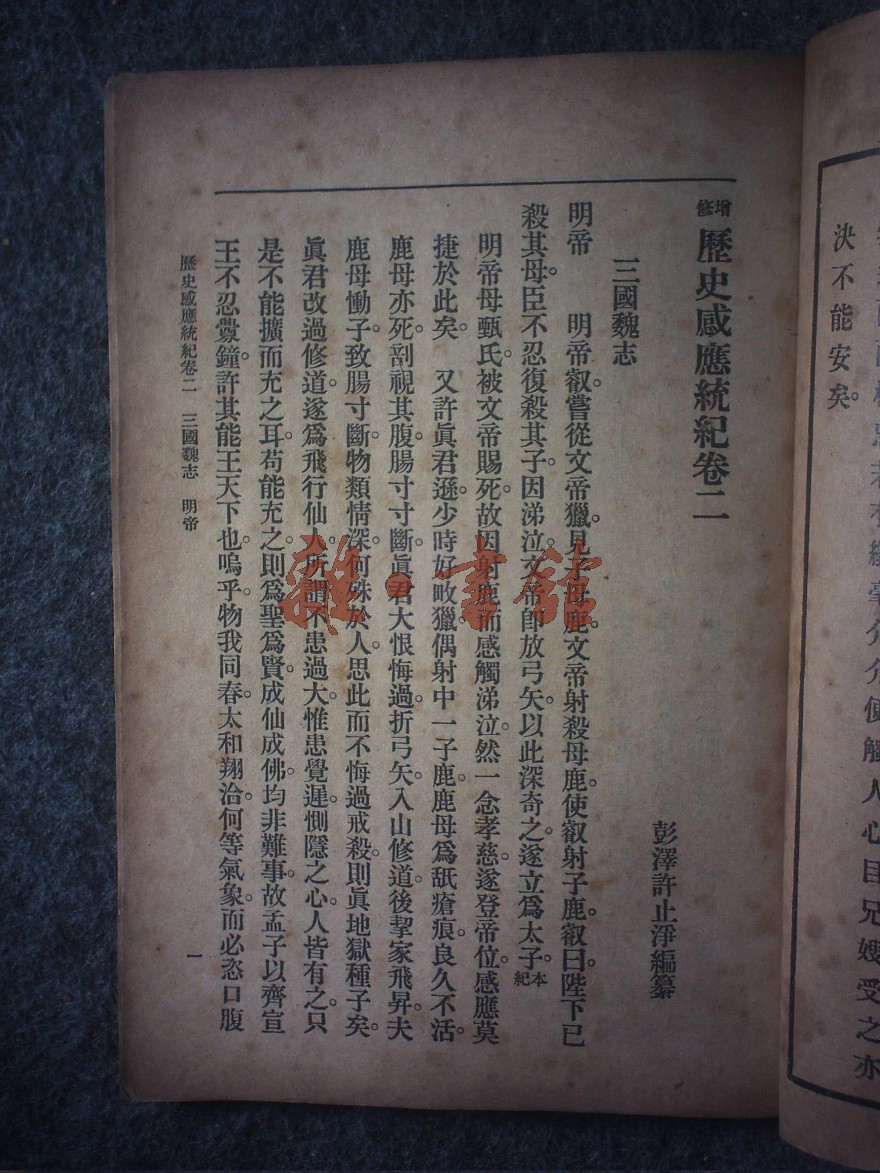 若有纖毫介介便觸人心目兄嫂受之亦
決不能安矣。
增修 歷史感應統紀卷二
彭澤許止淨編纂
三國魏志
明帝　明帝叡。嘗從文帝獵。見子母鹿。文帝射殺母鹿。使叡射子鹿。叡曰。陛下已
殺其母。臣不忍復殺其子。因涕泣。文帝即放弓矢。以此深奇之。遂立爲太子。本紀
明帝母甄氏。被文帝賜死。故因射鹿而感觸涕泣。然一念孝慈。遂登帝位。感應莫
捷於此矣。　又許眞君遜。少時好畋獵。偶射中一子鹿。鹿母爲舐瘡痕。良久不活。
鹿母亦死。剖視其腹。腸寸寸斷。眞君大恨悔過。折弓矢。入山修道。後挈家飛昇。夫
鹿母慟子。致腸寸斷。物類情深。何殊於人。思此而不悔過戒殺。則眞地獄種子矣。
眞君改過修道。遂爲飛行仙人。所謂不患過大。惟患覺遲。惻隱之心。人皆有之。只
是不能擴而充之耳。苟能充之。則爲聖爲賢。成仙成佛。均非難事。故孟子以齊宣
王不忍釁鐘。許其能王天下也。嗚乎。物我同春。太和翔洽。何等氣象。而必恣口腹
歷史感應統紀卷二　三國魏志　明帝
一
雜·書館